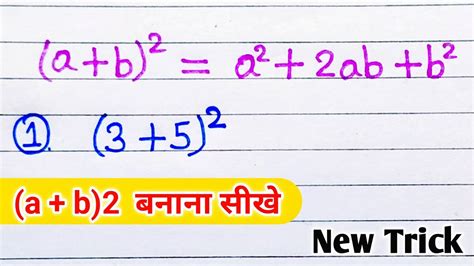 (a+b)² = a²+2ab+b²
① (3+5)²
(a + b)2 बनाना सीखे
New Trick